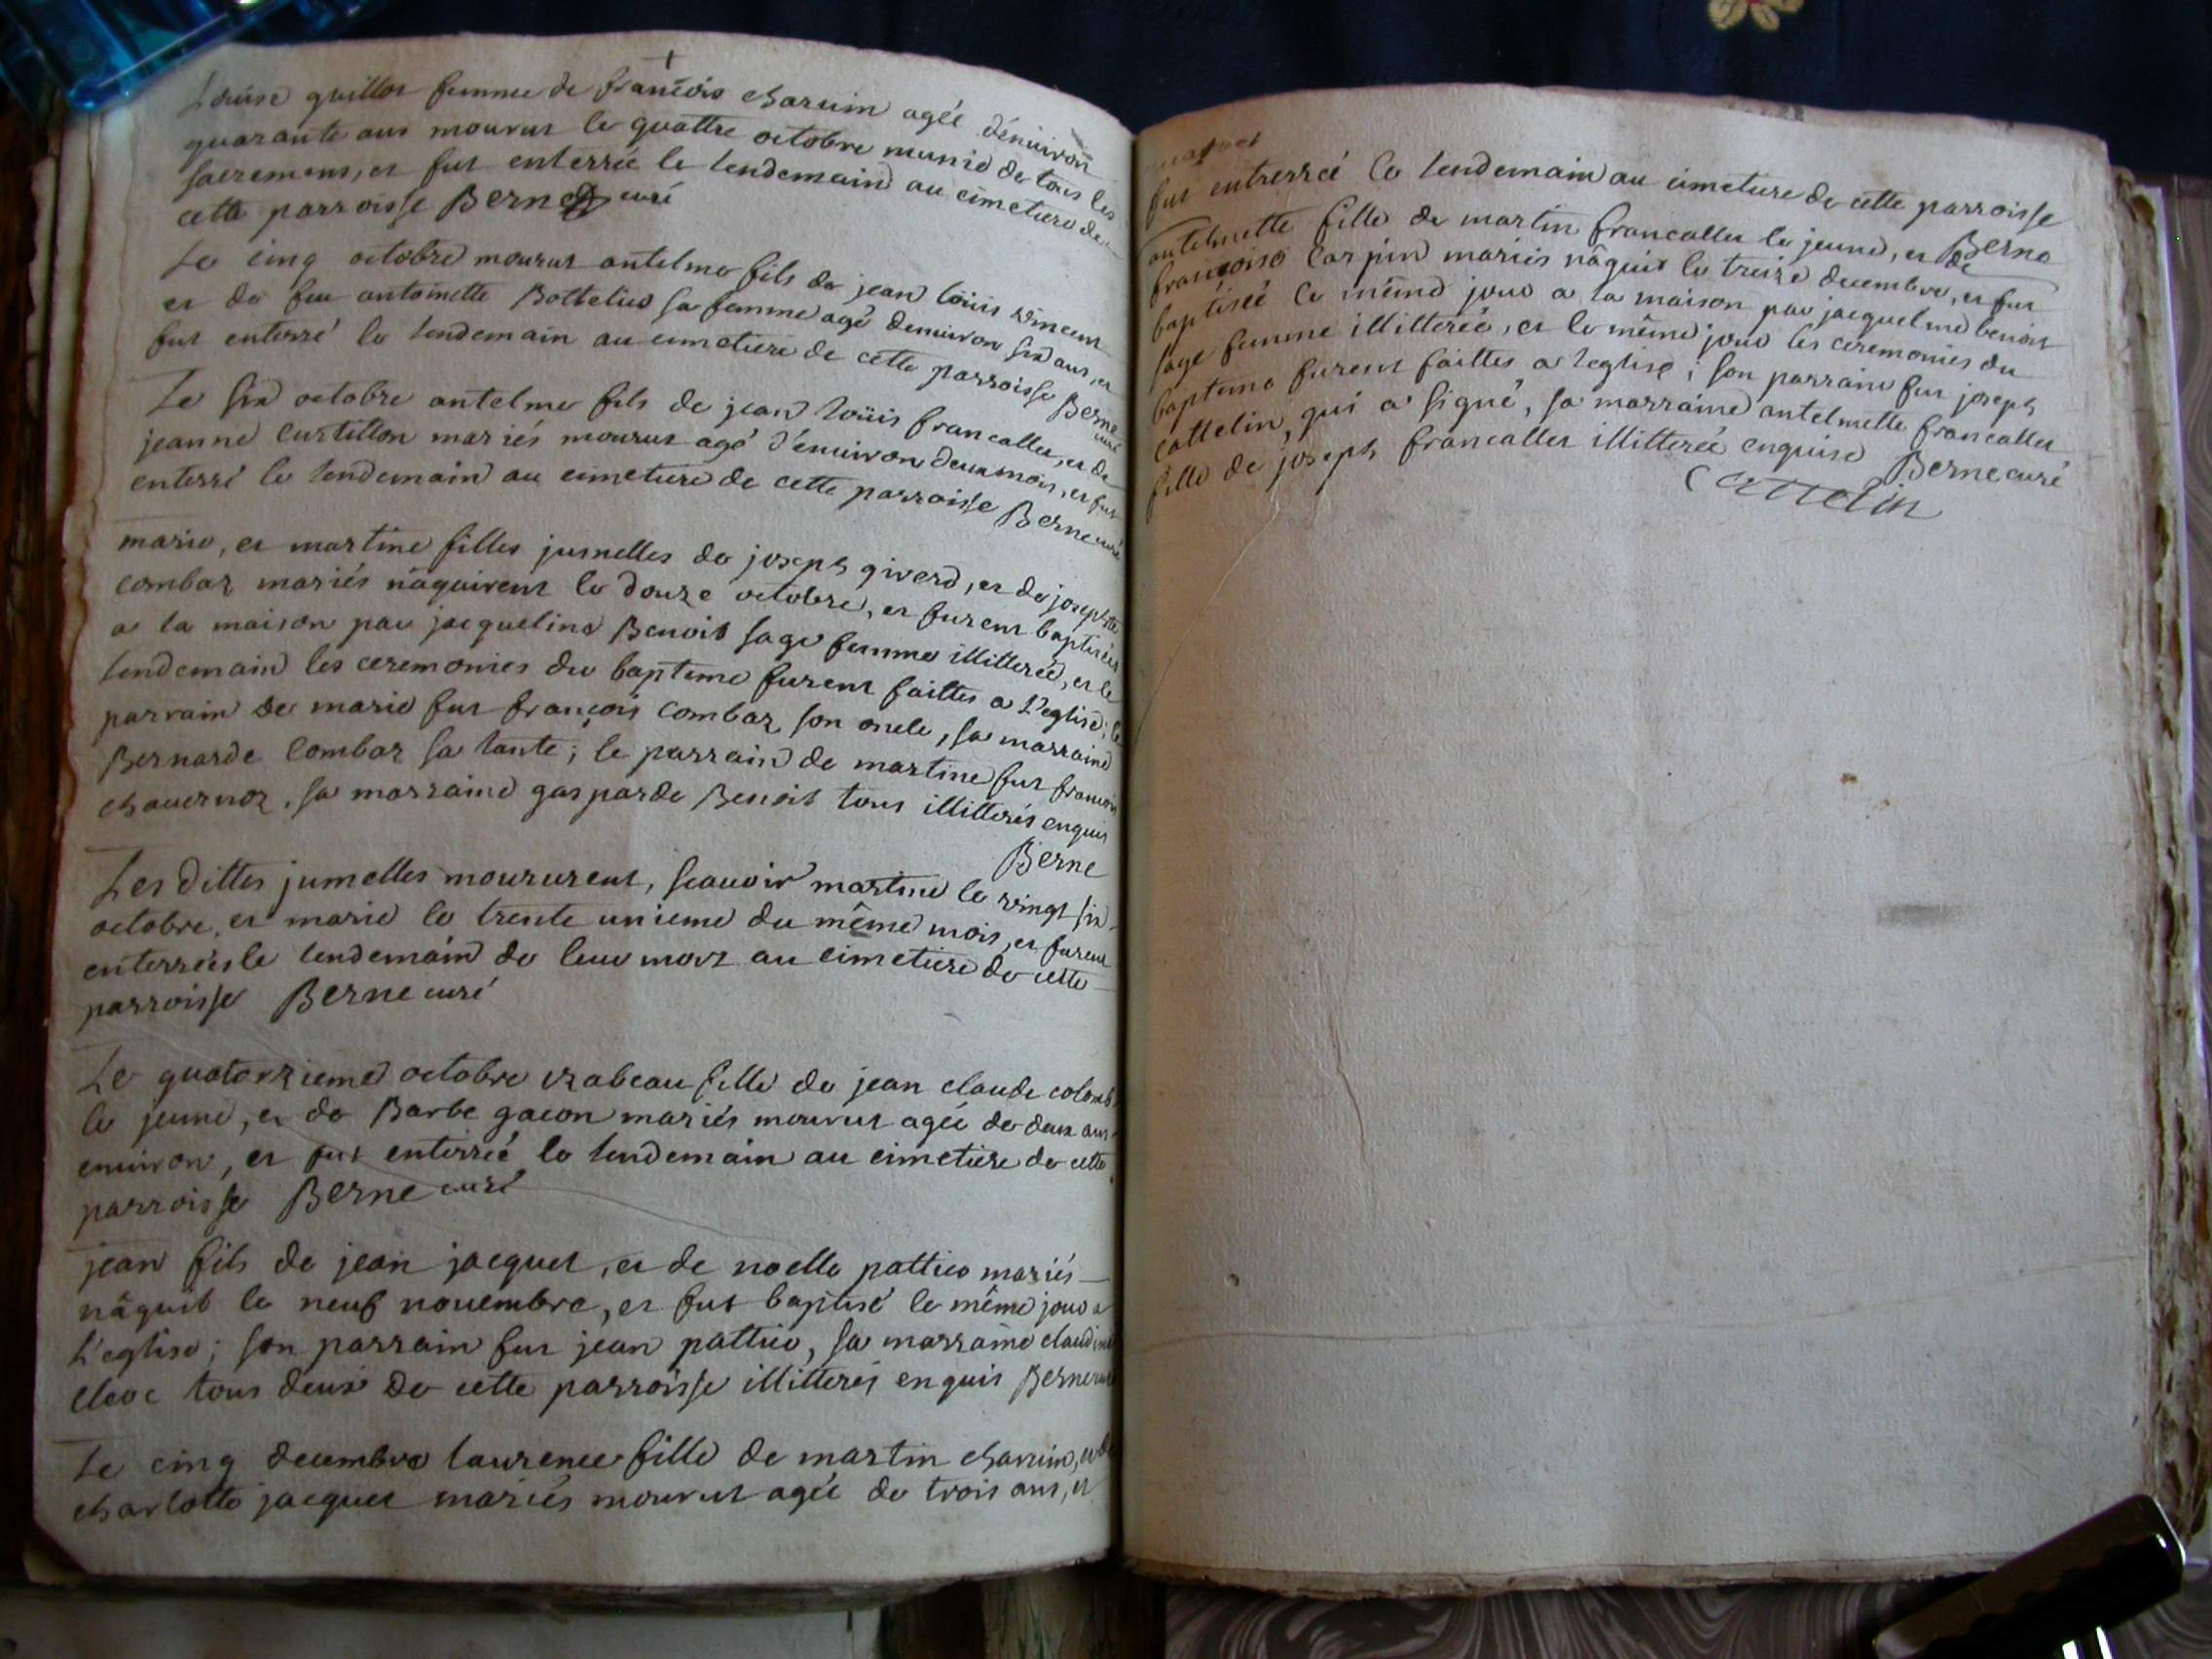 Loüise guillot femme de françois charuin agée d'énuiron
quarante ans mourut le quattre octobre munie de tous les
sacremens, et fut enterrée le lendemain au cimetiere de
cette parroisse Berne curé
Le cinq octobre mourut antelme fils de jean loüis vincent
et de feu antoinette Bottelier sa femme agé denuiron six ans, et
fut enterré le lendemain au cimetiere de cette parroisse Berne
curé
Le six octobre antelme fils de jean loüis francallet, et de
jeanne curtillon mariés mourut agé d'énuiron deux mois, et fut
enterré le lendemain au cimetiere de cette parroisse Berne curé
marie, et martine filles jumelles de joseph giverd, et de josephte
combaz mariés nâquirent le douze octobre, et furent baptisées
a la maison par jacqueline Benoit sage femme illitterée, et le
lendemain les ceremonies du bapteme furent faittes a l'eglise; le
parrain de marie fut françois combaz son oncle, sa marraine
Bernarde Combaz sa tante; le parrain de martine fut francois
chauernoz, sa marraine gasparde Benoit tous illitterés enquis
Berne
Les dittes jumelles moururent, scauoir martine le vingt six
octobre, et marie le trente unieme du même mois, et furent
enterrées le lendemain de leur mort au cimetiere de cette
parroisse Berne curé
Le quatorzieme octobre izabeau fille de jean claude colomb
le jeune, et de Barbe gacon mariés mourut agée de deux ans
enuiron, et fut enterrée le lendemain au cimetiere de cette
parroisse Berne curé
jean fils de jean jacquet, et de noelle pattier mariés
nâquit le neuf nouembre, et fut baptisé le même jour a
l'eglise; son parrain fut jean pattier, sa marraine claudine
cleoc tous deux de cette parroisse illitterés enquis Berne curé
Le cinq decembre laurence fille de martin charuin, et de
charlotte jacquet mariés mourut agée de trois ans, et
fut entrerrée le lendemain au cimetiere de cette parroisse
Berne
antelmette fille de martin francallet le jeune, et de
françoise Carpin mariés nâquit le treize decembre, et fut
baptisée le même jour a la maison par jacqueline benoit
sage femme illitterée, et le même jour les ceremonies du
bapteme furent faittes a leglise; son parrain fut joseph
cattelin, qui a signé, sa marraine antelmette francallet
fille de joseph francallet illitterée enquise Berne curé
Cattelin